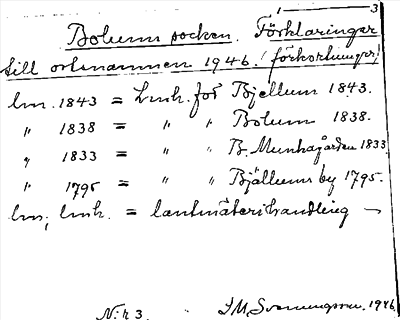 1 — 3
Bolum socken. Förklaringar
till ortnamnen 1946. (förkortningar)
lm. 1843 = Lmh. för Bjellum 1843.
" 1838 = " " Bolum 1838.
" 1833 = " " B. Munkagården 1833
" 1795 = " " Bjällums by 1795.
lm; lmh. = lantmäterihandling —
N:r 3. J M Svenungsson. 1946.